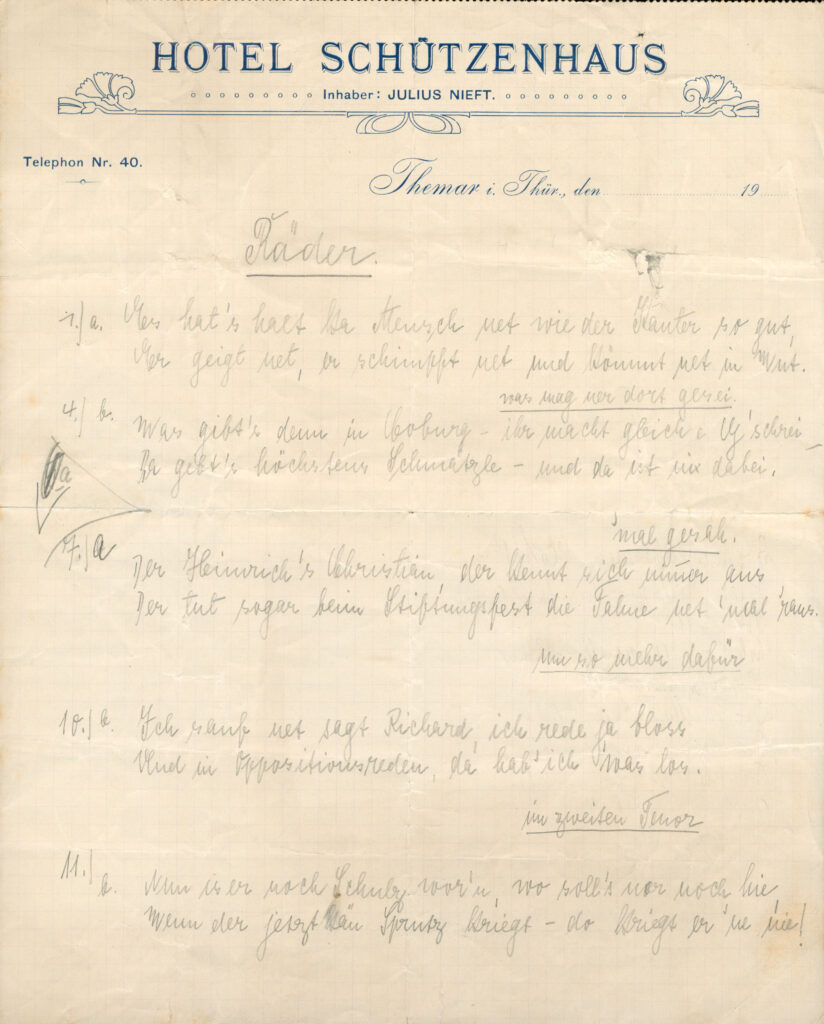 HOTEL SCHÜTZENHAUS
Inhaber: JULIUS NIEFT.
Telephon Nr. 40.
Themar i. Thür., den 19
Räder.
1.) a. Es hat's halt ka Mensch net wie der Kanter so gut,
Er geigt net, er schimpft net und kömmt net in Wut.
was mag ner dort gesei.
4.) b. Was gibt's denn in Coburg - ihr macht gleich e G'schrei
Da gibt's höchstens Schmätzle - und da ist nix dabei.
a
'mal gesah.
7.) a Der Heinrich's Christian, der kennt sich immer aus
Der tut sogar beim Stiftungsfest die Fahne net 'mal 'raus.
um so mehr dafür
10.) b. Ich sauf net sagt Richard, ich rede ja bloss
Und in Oppositionsreden, da hab' ich 'was los.
im zweiten Tenor
11.) b. Nun is er noch Schulz wor'n, wo soll's nor noch hie
Wenn der jetzt kän Sprutz kriegt - do kriegt er 'ne nie!